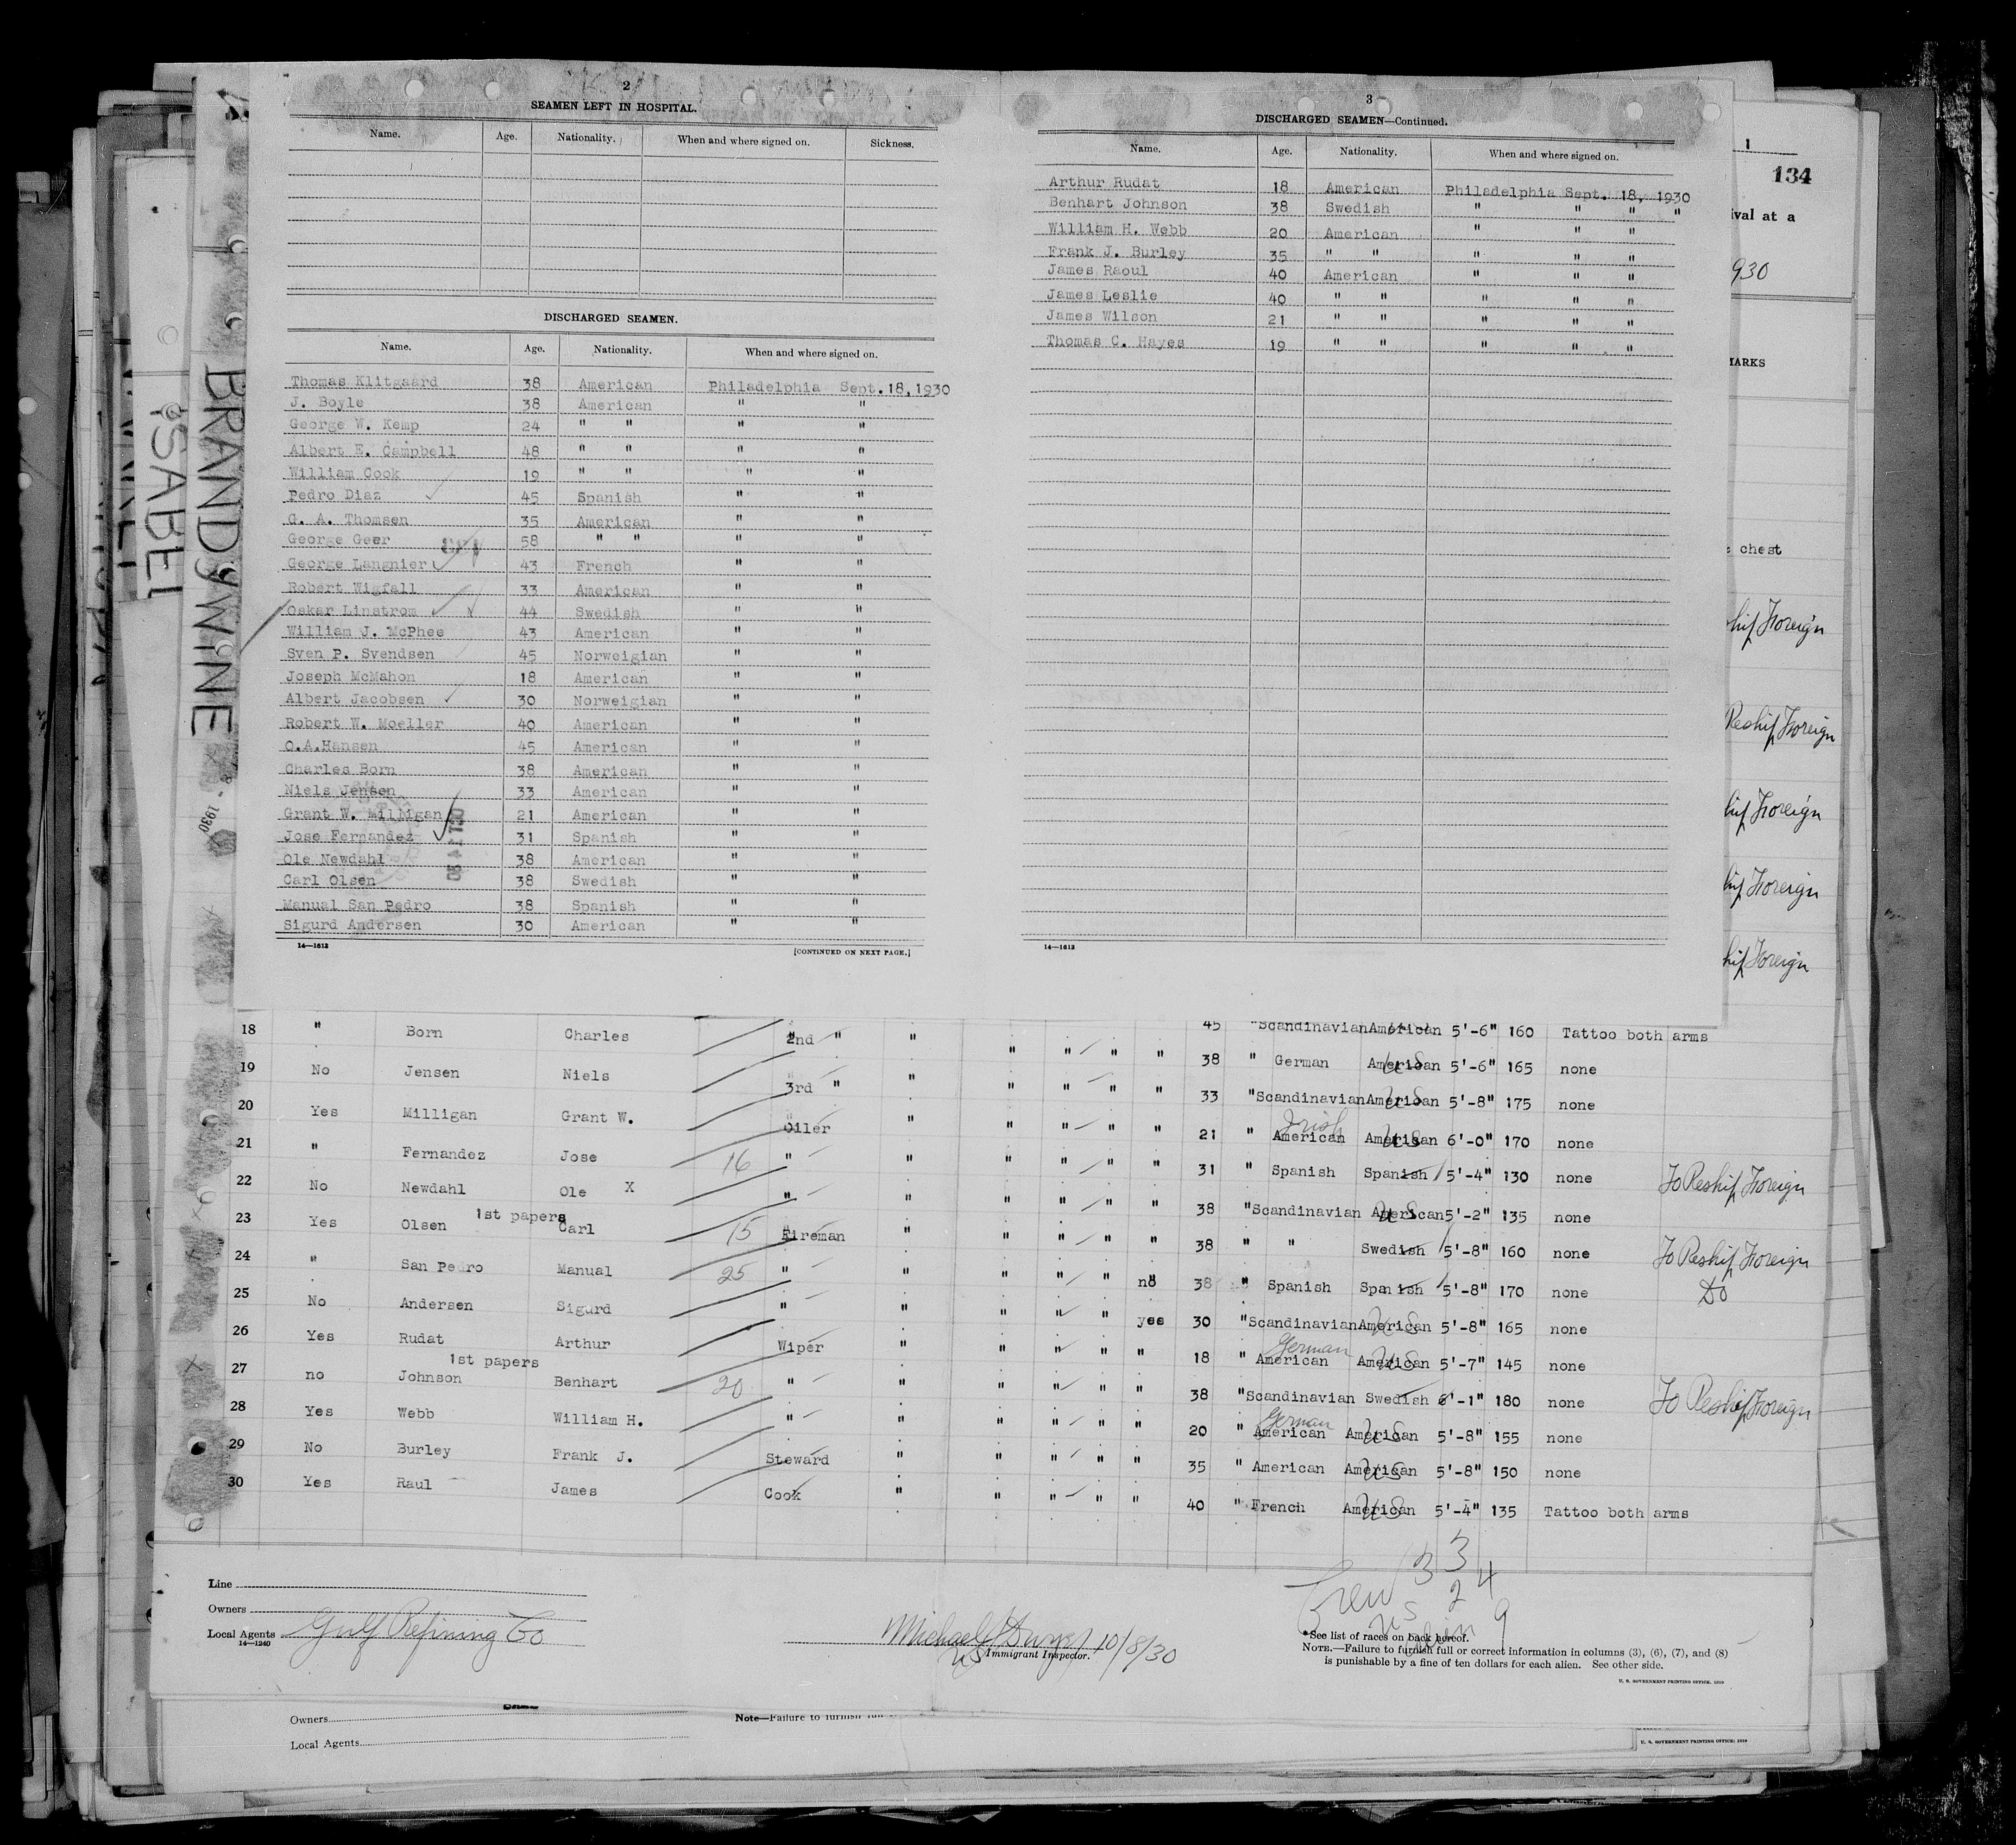 2
SEAMEN LEFT IN HOSPITAL.
Name. Age. Nationality. When and where signed on. Sickness.
DISCHARGED SEAMEN.
Name. Age. Nationality. When and where signed on.
Thomas Klitgaard 38 American Philadelphia Sept.18,1930
J. Boyle 38 American " "
George W. Kemp 24 " " " "
Albert E. Campbell 48 " " " "
William Cook 19 " " " "
Pedro Diaz 45 Spanish " "
G. A. Thomsen 35 American " "
George Geer 58 " " " "
George Langnier 43 French " "
Robert Wigfall 33 American " "
Oskar Linstrom 44 Swedish " "
William J. McPhee 43 American " "
Sven P. Svendsen 45 Norweigian " "
Joseph McMahon 18 American " "
Albert Jacobsen 30 Norweigian " "
Robert W. Moeller 40 American " "
O.A.Hansen 45 American " "
Charles Born 38 American " "
Niels Jensen 33 American " "
Grant W. Milligan 21 American " "
Jose Fernandez 31 Spanish " "
Ole Newdahl 38 American " "
Carl Olsen 38 Swedish " "
Manual San Pedro 38 Spanish " "
Sigurd Andersen 30 American " "
14—1612 [CONTINUED ON NEXT PAGE.]
3
DISCHARGED SEAMEN—Continued.
Name. Age. Nationality. When and where signed on.
Arthur Rudat 18 American Philadelphia Sept. 18, 1930
Benhart Johnson 38 Swedish " " " "
William H. Webb 20 American " " "
Frank J. Burley 35 " " " " "
James Raoul 40 American " " "
James Leslie 40 " " " " "
James Wilson 21 " " " " "
Thomas C. Hayes 19 " " " " "
14—1612
1
134
ival at a
930
MARKS
chest
hip Foreign
Reship Foreign
hip Foreign
hip Foreign
hip Foreign
ISABEL
BRANDYWINE
8 - 1930
45 "ScandinavianAmerican 5'-6" 160 Tattoo both arms
18 " Born Charles 2nd " " " " " " 38 " German American US 5'-6" 165 none
19 No Jensen Niels 3rd " " " " " " 33 "ScandinavianAmerican US 5'-8" 175 none
20 Yes Milligan Grant W. Oiler " " " " " 21 " American Irish American US 6'-0" 170 none
21 " Fernandez Jose 16 " " " " " " 31 " Spanish Spanish 5'-4" 130 none To Reship Foreign
22 No Newdahl Ole X " " " " " " 38 "Scandinavian American US 5'-2" 135 none
23 Yes Olsen 1st papers Carl 15 Fireman " " " " " 38 " " Swedish 5'-8" 160 none To Reship Foreign
24 " San Pedro Manual 25 " " " " " no 38 " Spanish Spanish 5'-8" 170 none Do
25 No Andersen Sigurd " " " " " yes 30 "ScandinavianAmerican US 5'-8" 165 none
26 Yes Rudat Arthur Wiper " " " " " 18 " American German American US 5'-7" 145 none
27 no Johnson 1st papers Benhart 20 " " " " " " 38 "Scandinavian Swedish 6'-1" 180 none To Reship Foreign
28 Yes Webb William H. " " " " " " 20 " American German American US 5'-8" 155 none
29 No Burley Frank J. Steward " " " " " 35 " American American US 5'-8" 150 none
30 Yes Raul James Cook " " " " " 40 " French American US 5'-4" 135 Tattoo both arms
Line
Owners
Local Agents Gulf Refining Co
14—1240
10/8/30
US Immigrant Inspector.
Crew 33
US 24
alien 9
*See list of races on back hereof.
NOTE.—Failure to furnish full or correct information in columns (3), (6), (7), and (8)
is punishable by a fine of ten dollars for each alien. See other side.
U. S. GOVERNMENT PRINTING OFFICE: 1929
Owners
Note—Failure to furnish full
Local Agents
U. S. GOVERNMENT PRINTING OFFICE: 1929